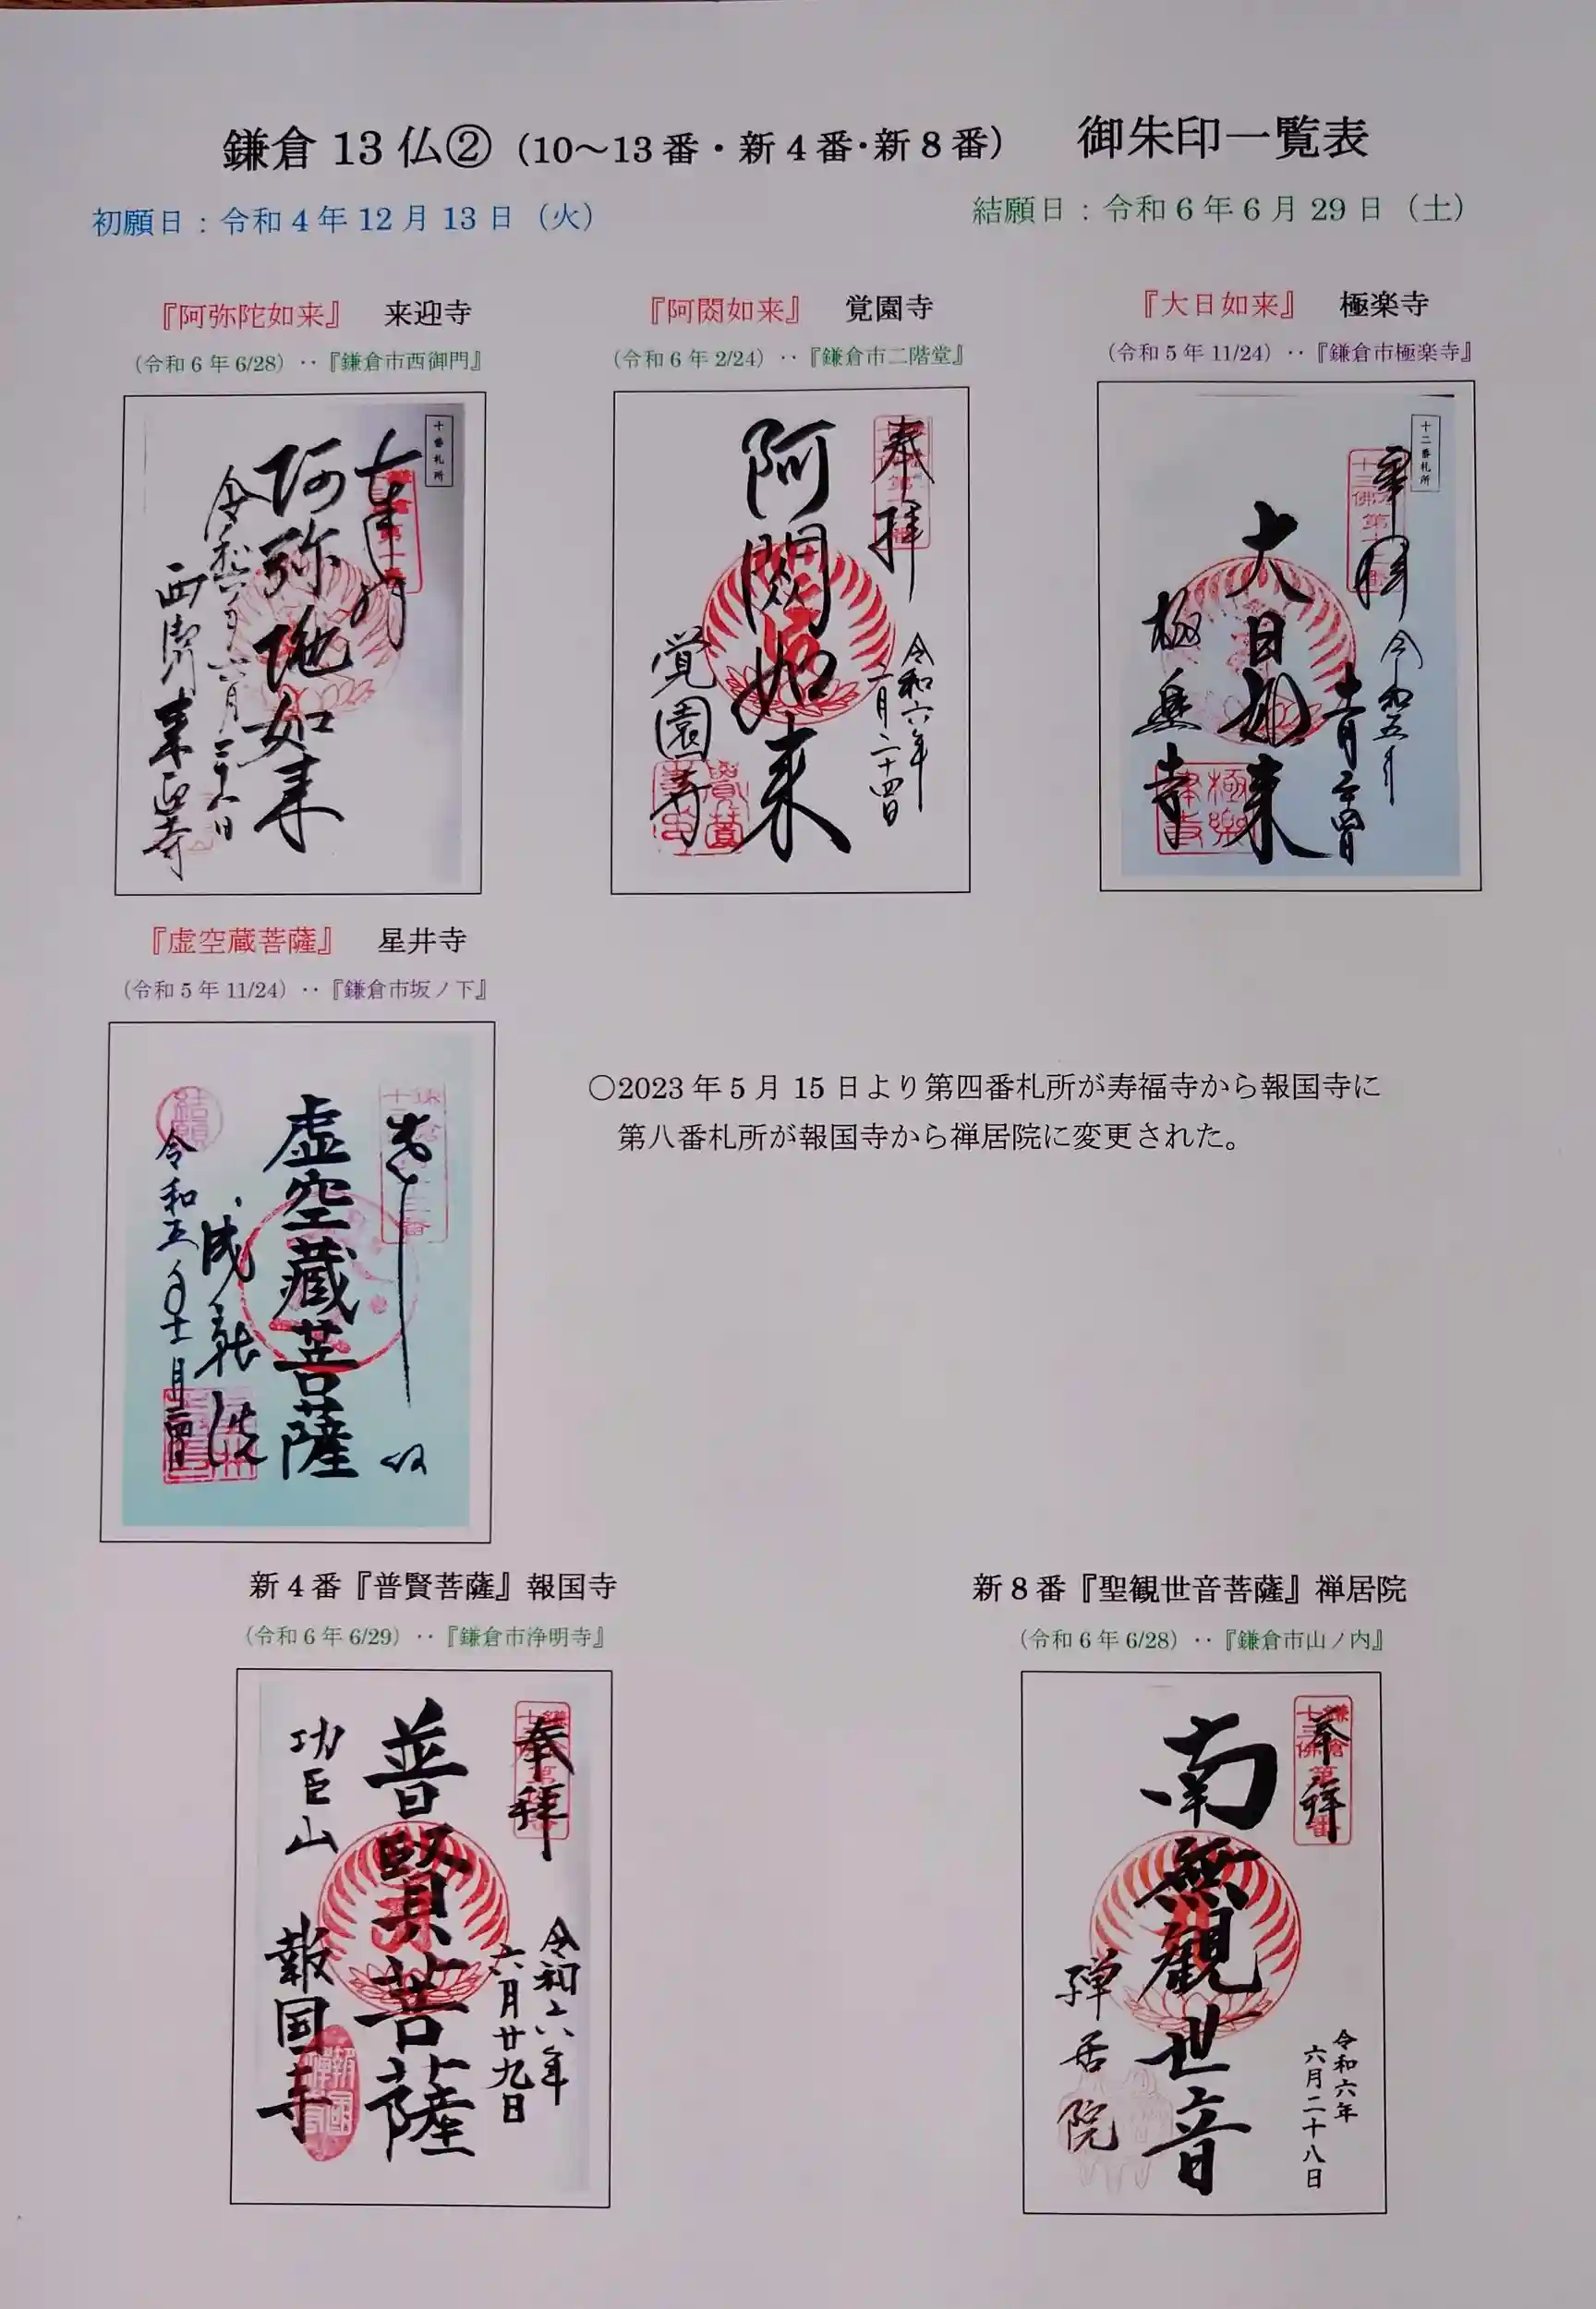 鎌倉 13 仏②（10～13 番・新 4 番･新 8 番）　御朱印一覧表
初願日：令和 4 年 12 月 13 日（火）
結願日：令和 6 年 6 月 29 日（土）
『阿弥陀如来』　来迎寺
（令和 6 年 6/28）‥『鎌倉市西御門』
十番札所
阿弥陀如来
西御門 来迎寺
『阿閦如来』　覚園寺
（令和 6 年 2/24）‥『鎌倉市二階堂』
奉拝
令和六年
二月二十四日
阿閦如来
覚園寺
『大日如来』　極楽寺
（令和 5 年 11/24）‥『鎌倉市極楽寺』
十二番札所
奉拝 令和五年
十一月二十四日
大日如来
極楽寺
『虚空蔵菩薩』　星井寺
（令和 5 年 11/24）‥『鎌倉市坂ノ下』
虚空蔵菩薩
成就院
結願
〇2023 年 5 月 15 日より第四番札所が寿福寺から報国寺に
第八番札所が報国寺から禅居院に変更された。
新 4 番『普賢菩薩』報国寺
（令和 6 年 6/29）‥『鎌倉市浄明寺』
奉拝
令和六年
六月廿九日
普賢菩薩
功臣山 報国寺
新 8 番『聖観世音菩薩』禅居院
（令和 6 年 6/28）‥『鎌倉市山ノ内』
奉拝
令和六年
六月二十八日
南無観世音
禅居院